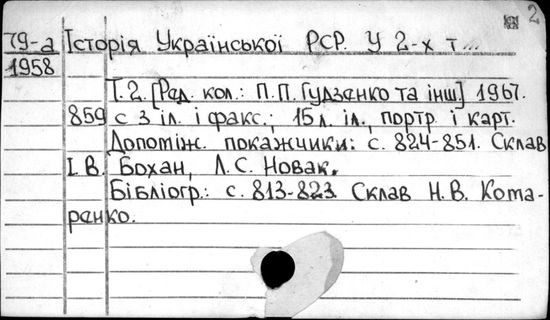 2
79-а Історія Української РСР. У 2-х т...
1958
Т.2. [Ред. кол.: П.П. Гудзенко та інш.] 1967.
859 с з іл. і факс.; 15 л. іл., портр. і карт.
Допоміж. покажчики: с. 824-851. Склав
І. В. Бохан, Л.С. Новак.
Бібліогр.: с. 813-823. Склав Н.В. Кома-
ренко.